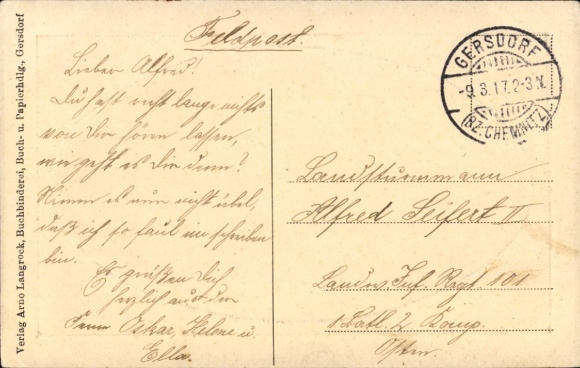 Feldpost.
Lieber Alfred!
Du hast recht lange nichts
von Dir hören lassen,
wie geht es Dir denn?
Nimm es nur nicht übel,
daß ich so faul im schreiben
bin.
Es grüßen Dich
herzlich aus der
Oskar, Helene u.
Ella.
GERSDORF
-9.3.17.2-3N.
(BZ. CHEMNITZ)
Landsturmmann
Alfred Seifert II
Landw. Inf. Regt 101
1. Batl. 2 Komp.
Osten.
Verlag Arno Langrock, Buchbinderei, Buch- u. Papierhdlg., Gersdorf